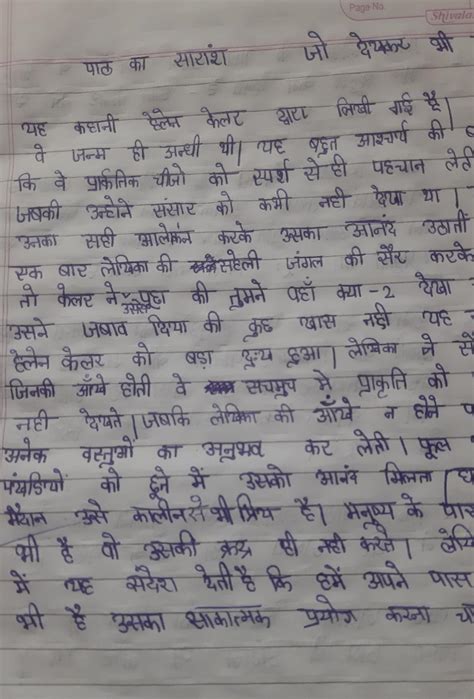 Page No.
Shivalal
पाठ का सारांश जो देखकर भी
यह कहानी हेलेन केलर द्वारा लिखी गई है।
वे जन्म ही अन्धी थी। यह बहुत आश्चर्य की
कि वे प्रार्कतिक चीजो को स्पर्श से ही पहचान लेती
जबकी उन्होने संसार को कभी नही देखा था।
उनका सही आलोकन करके उसका आनंद उठाती
एक बार लेखिका की सहेली जंगल की सैर करके
तो केलर ने उससे पूछा की तुमने वहाँ क्या-2 देखा
उसने जबाव दिया की कुछ खास नही यह
हेलेन केलर को बड़ा दुःख हुआ। लेखिका ने
जिनकी आँखे होती वे सचमुच मे प्राकृति को
नही देखते। जबकि लेखिका की आँखे न होने
अनेक वस्तुओं का अनुभव कर लेती। फूल
पंखडियों को छूने में उसको आनंद मिलता
मैदान उसे कालीन से भी प्रिय है। मनुष्य के पास
भी है वो उसकी कद्र ही नही करते।
में यह संदेश देती है कि हमें अपने पास
भी है उसका साकात्मक प्रयोग करना